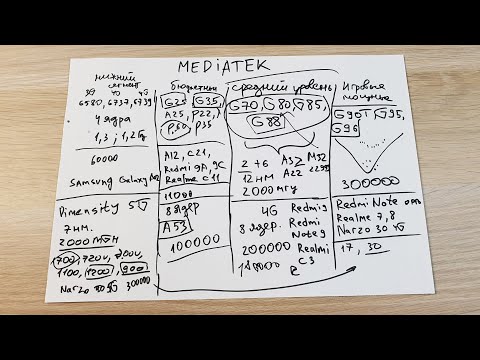 MEDIATEK
нижний
сегмент
3G 4G 4G
6580, 6737, 6739
4 ядра
1,3 ; 1,2 Гц
60000
Samsung Galaxy
Dimensity 5G
7нм.
2000 мгн
700, 720U,
1100, 1200, 900
Narzo 30 5G 300000
бюджетный
G25, G35,
A25, P22,
P60, P35
A12, C21,
Redmi 9A, 9C
Realme C11
11000
8 ядер
A53
100000
средний уровень
G70, G80, G85,
G88
2+6
12нм
2000 мгу
A32 M32
A22
4G Redmi 9
8 ядер. Redmi
Note 9
200000 Realmi
C3
Игровые
мощные
G90T, G95,
G96
300000
Redmi Note
Realme 7,8
Narzo 30 4G
17, 30